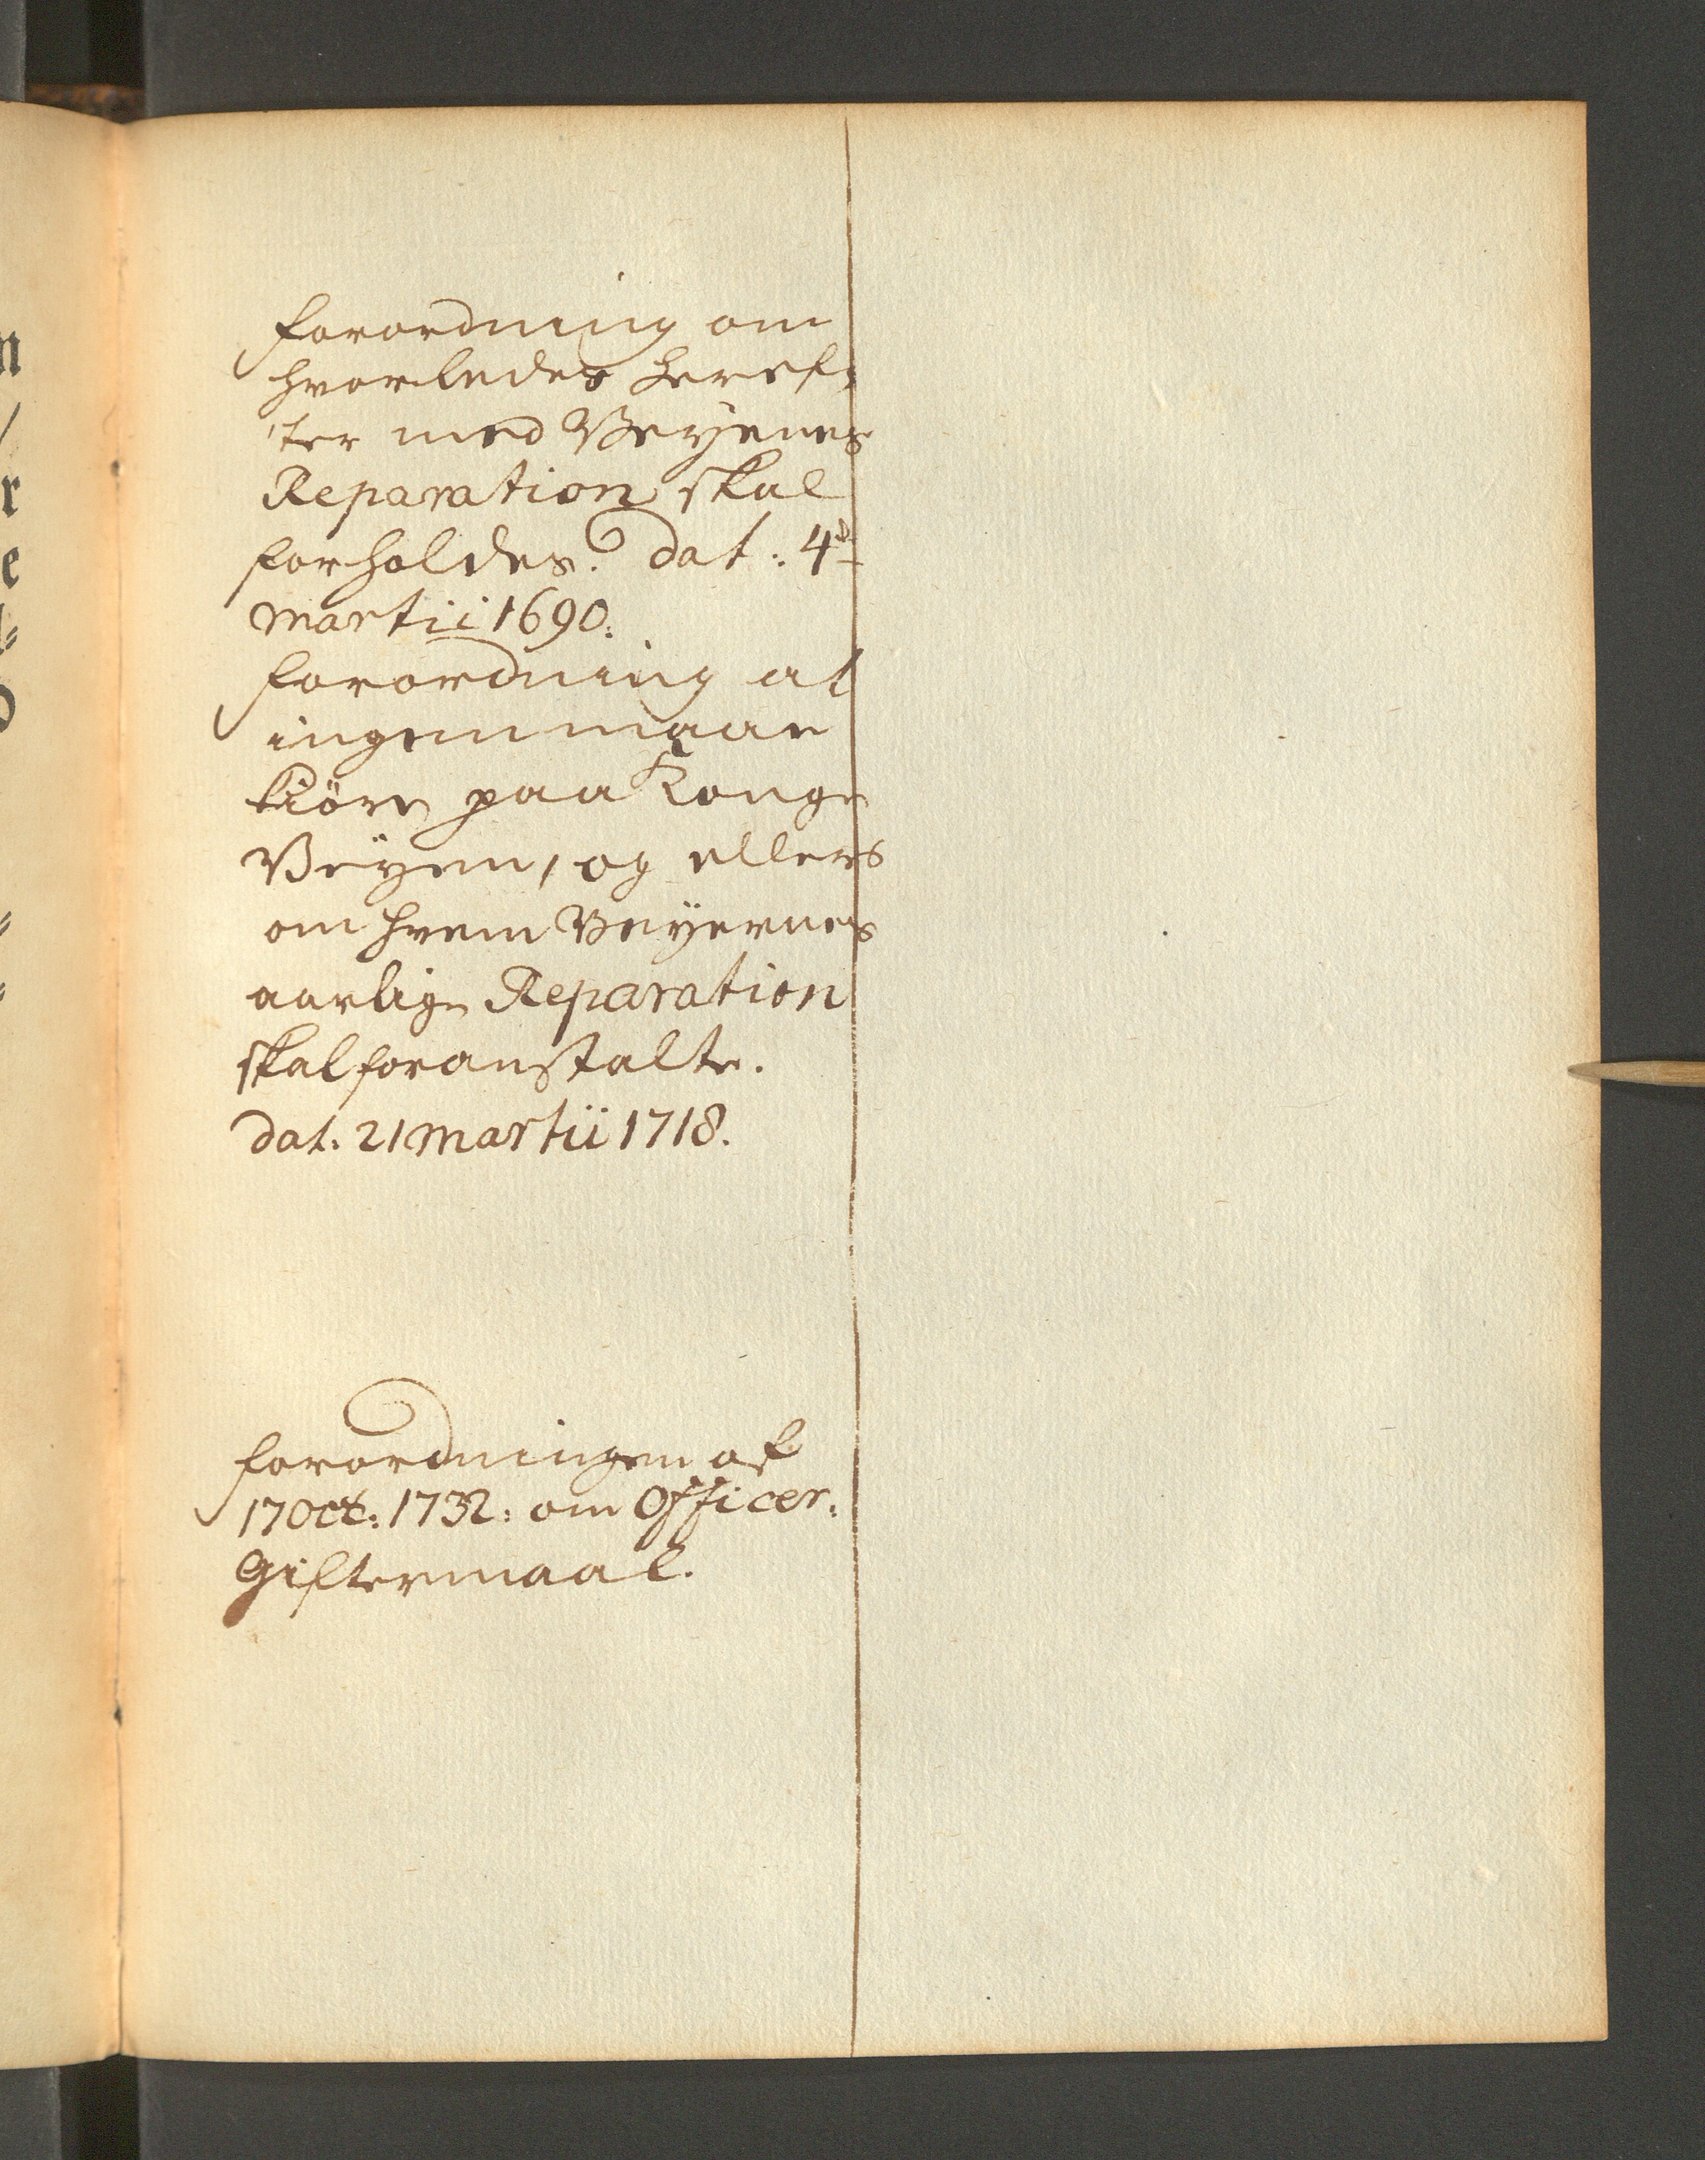 Forordning om
hvorledes heref-
ter med Veyenes
Reparation skal
forholdes. dat: 4de
Martii 1690.
Forordning at
ingen maae
kiöre paa Konge
Veyen, og ellers
om hvem Veyernes
aarlige Reparation
skal foranstalte.
dat: 21 Martii 1718.
Forordningen af
17 Oct: 1732: om Officer:
Giftermaal.